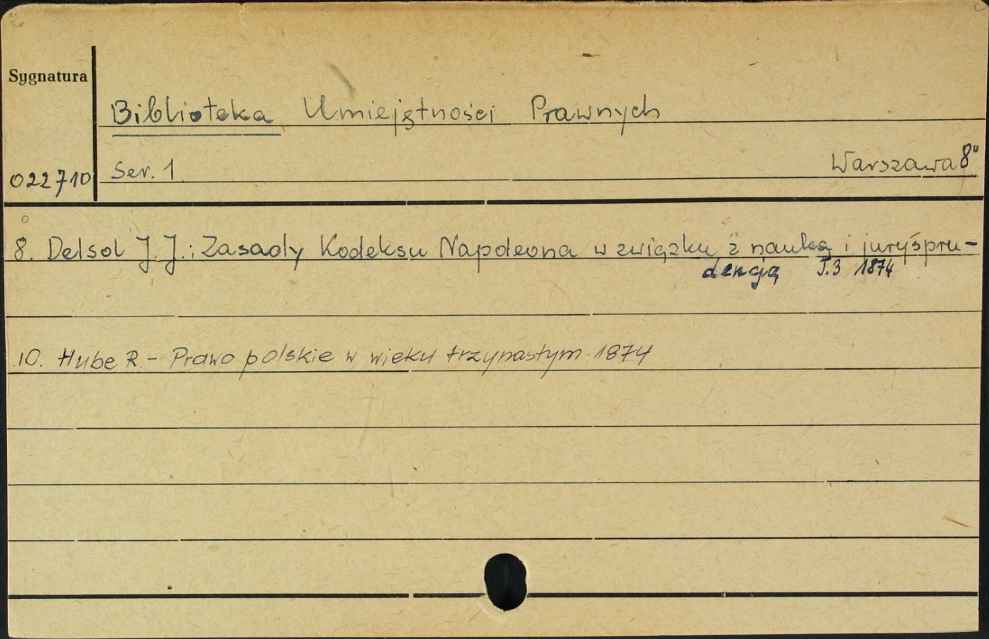 Sygnatura
Biblioteka Umiejętności Prawnych
022710 Ser. 1. Warszawa 8°
8. Delsol J. J.: Zasady Kodeksu Napoleona w związku z nauką i juryspru-
dencją T.3 1874
10. Hube R - Prawo polskie w wieku trzynastym 1874